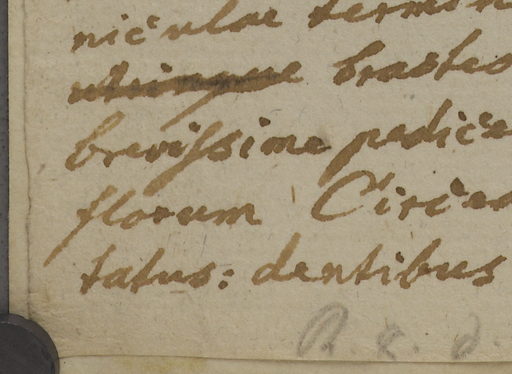 niculae termin
utrinque bractes
brevissime pedice
florum Circea
tatus: dentibus
R. x. d.